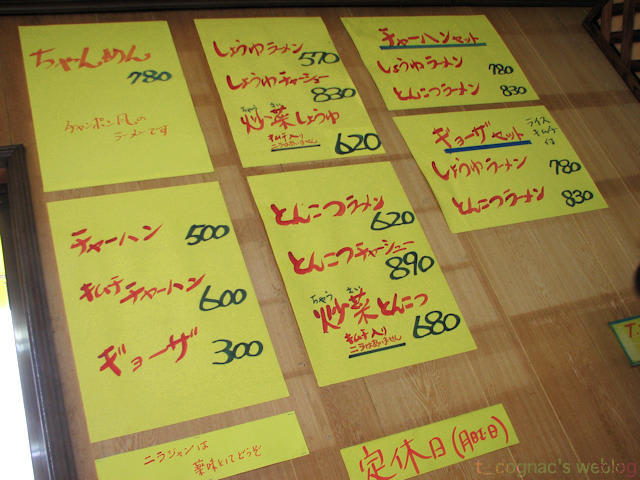 ちゃんめん
780
チャンポン風の
ラーメンです
しょうゆラーメン 570
しょうゆチャーシュー 830
ちゃう さい
炒菜しょうゆ
キムチ入り
ニラはありません 620
チャーハンセット
しょうゆラーメン 780
とんこつラーメン 830
ギョーザセット
ライス
キムチ
しょうゆラーメン 780
とんこつラーメン 830
チャーハン 500
キムチチャーハン 600
ギョーザ 300
とんこつラーメン 620
とんこつチャーシュー 890
ちゃう さい
炒菜とんこつ
キムチ入り
ニラはありません 680
ニラジャンは
薬味としてどうぞ
定休日(月曜日)
t_cognac's weblog